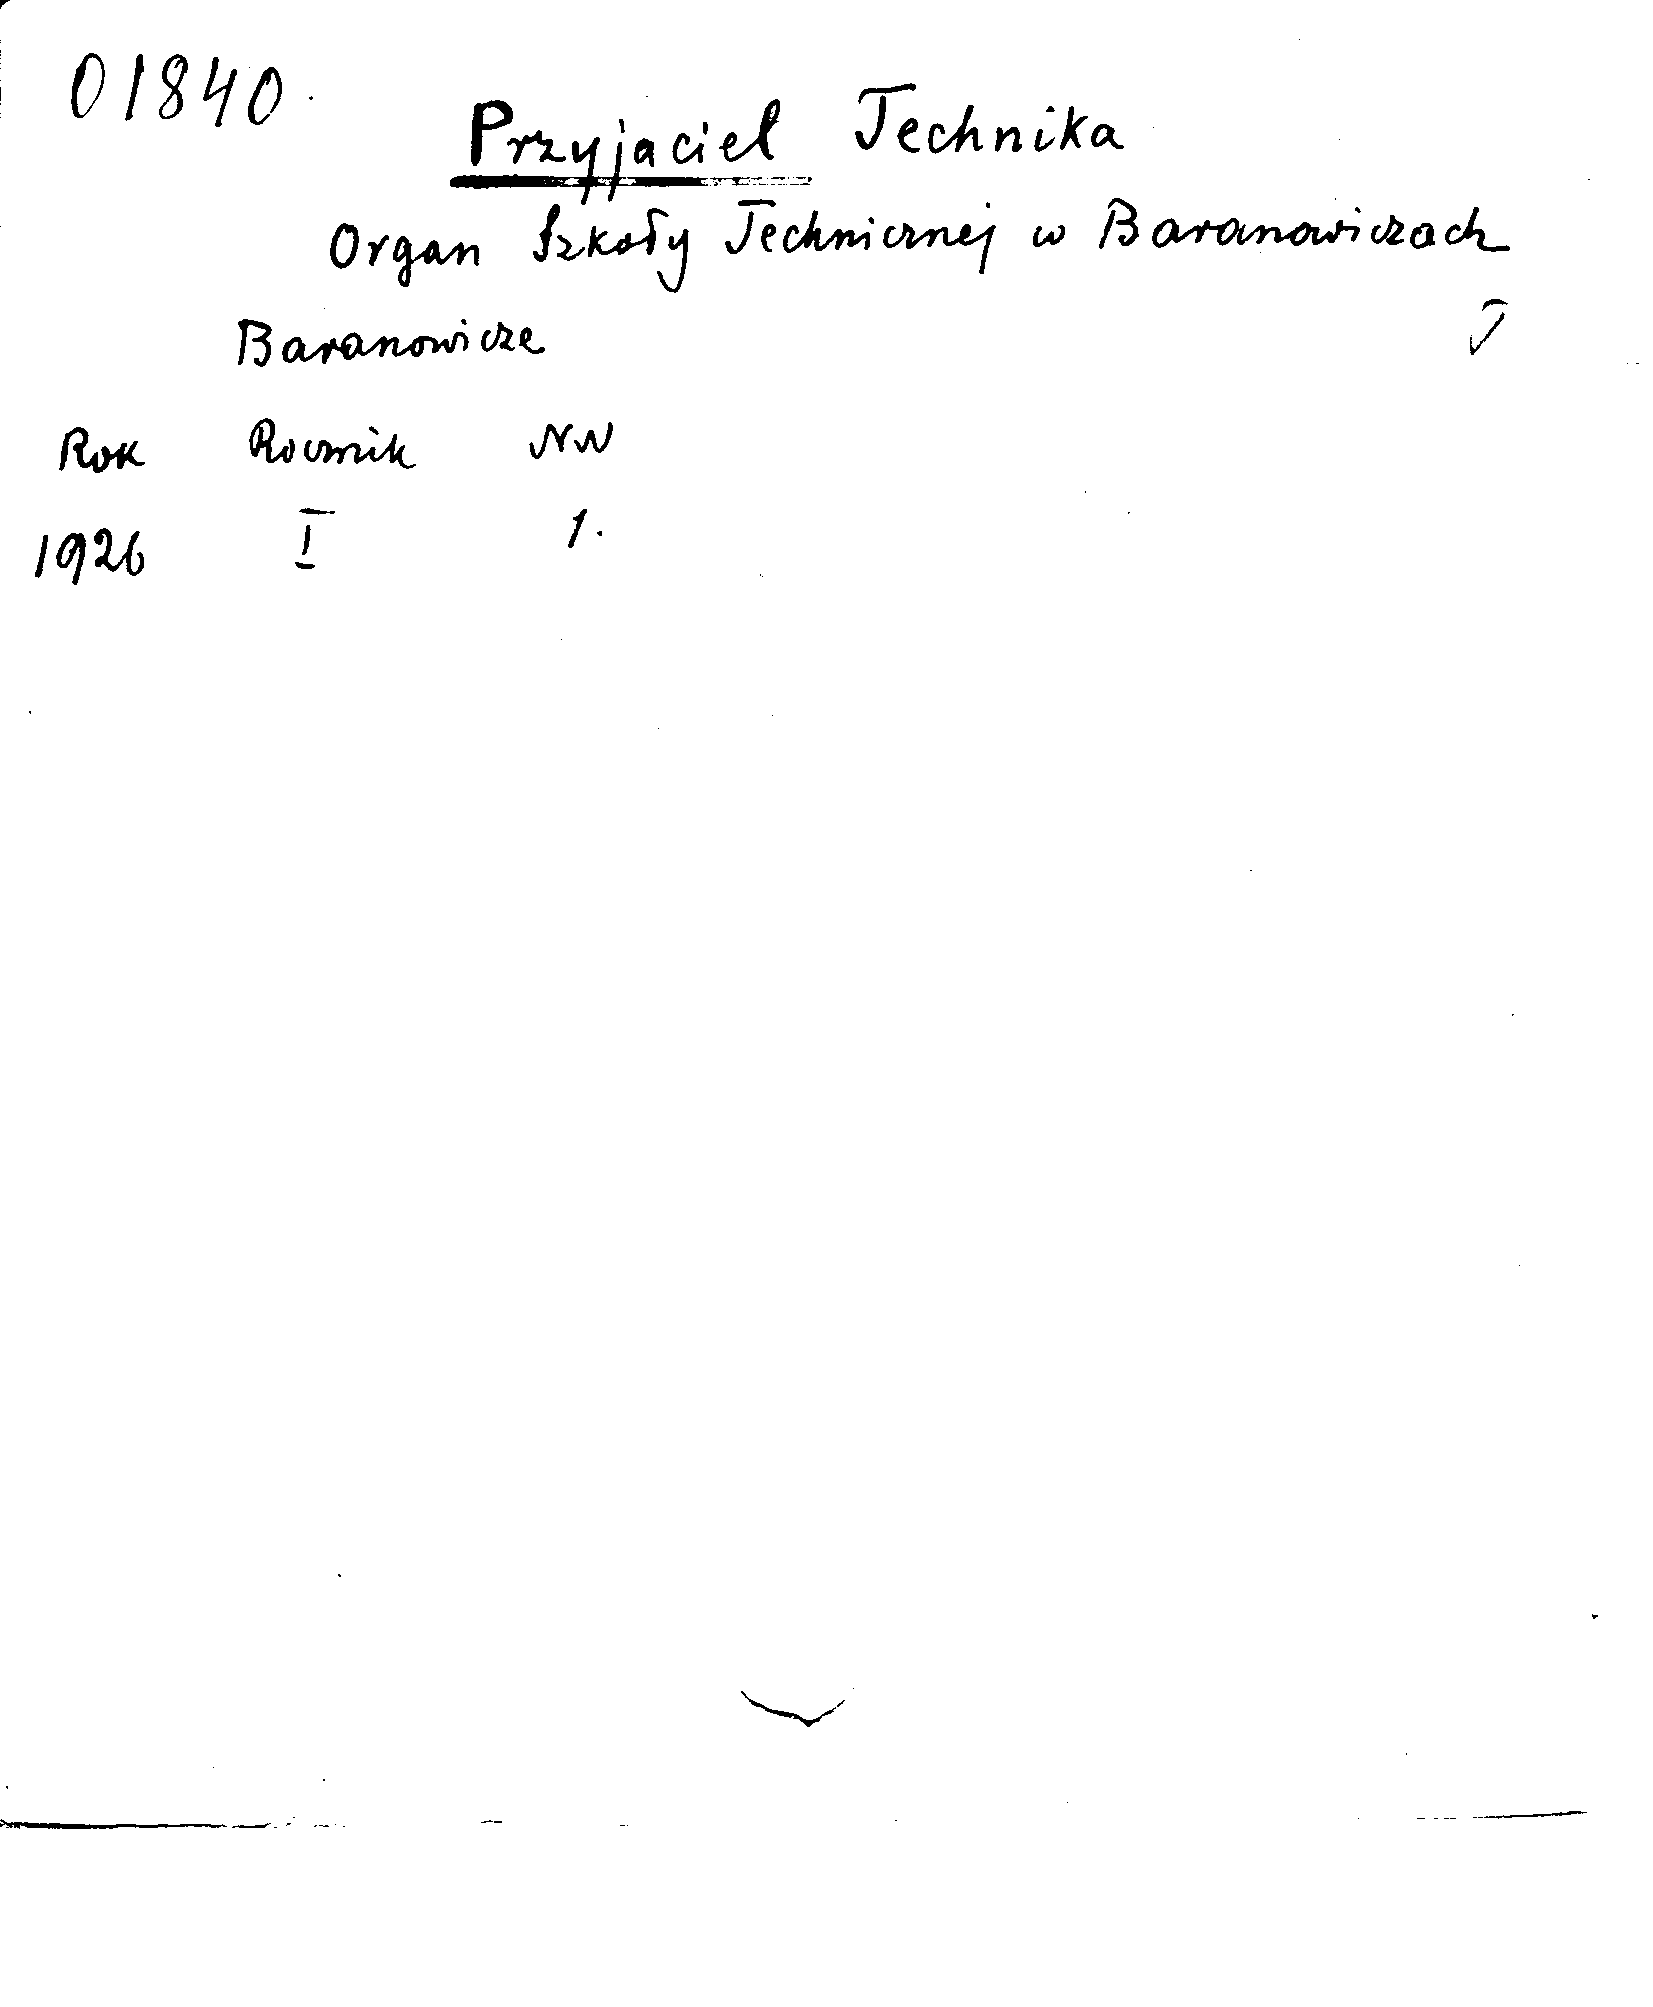 01840
Przyjaciel Technika
Organ Szkoły Technicznej w Baranowiczach
Baranowicze
Rok Rocznik NN
1926 I 1.